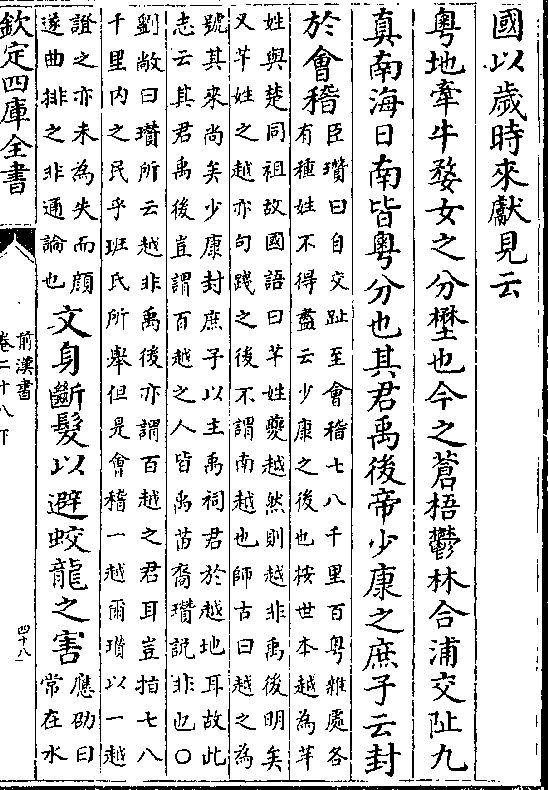 國以歲時來獻見云
粤地牽牛婺女之分壄也今之蒼梧鬱林合浦交阯九
真南海日南皆粤分也其君禹後帝少康之庶子云封
於會稽臣瓉曰自交趾至會稽七八千里百粤雜處各
有種姓不得盡云少康之後也按世本越為芊
姓與楚同祖故國語曰芊姓䕫越然則越非禹後明矣
又芊姓之越亦句踐之後不謂南越也師古曰越之為
號其來尚矣少康封庶子以主禹祠君於越地耳故此
志云其君禹後豈謂百越之人皆禹苗裔瓉說非也〇
劉敞曰瓉所云越非禹後亦謂百越之君耳豈指七八
千里内之民乎班氏所舉但是會稽一越爾瓉以一越
證之亦未為失而顔
遂曲排之非通論也
文身斷髮以避蛟龍之害應劭曰
常在水
欽定四庫全書
前漢書
卷二十八下
四十八